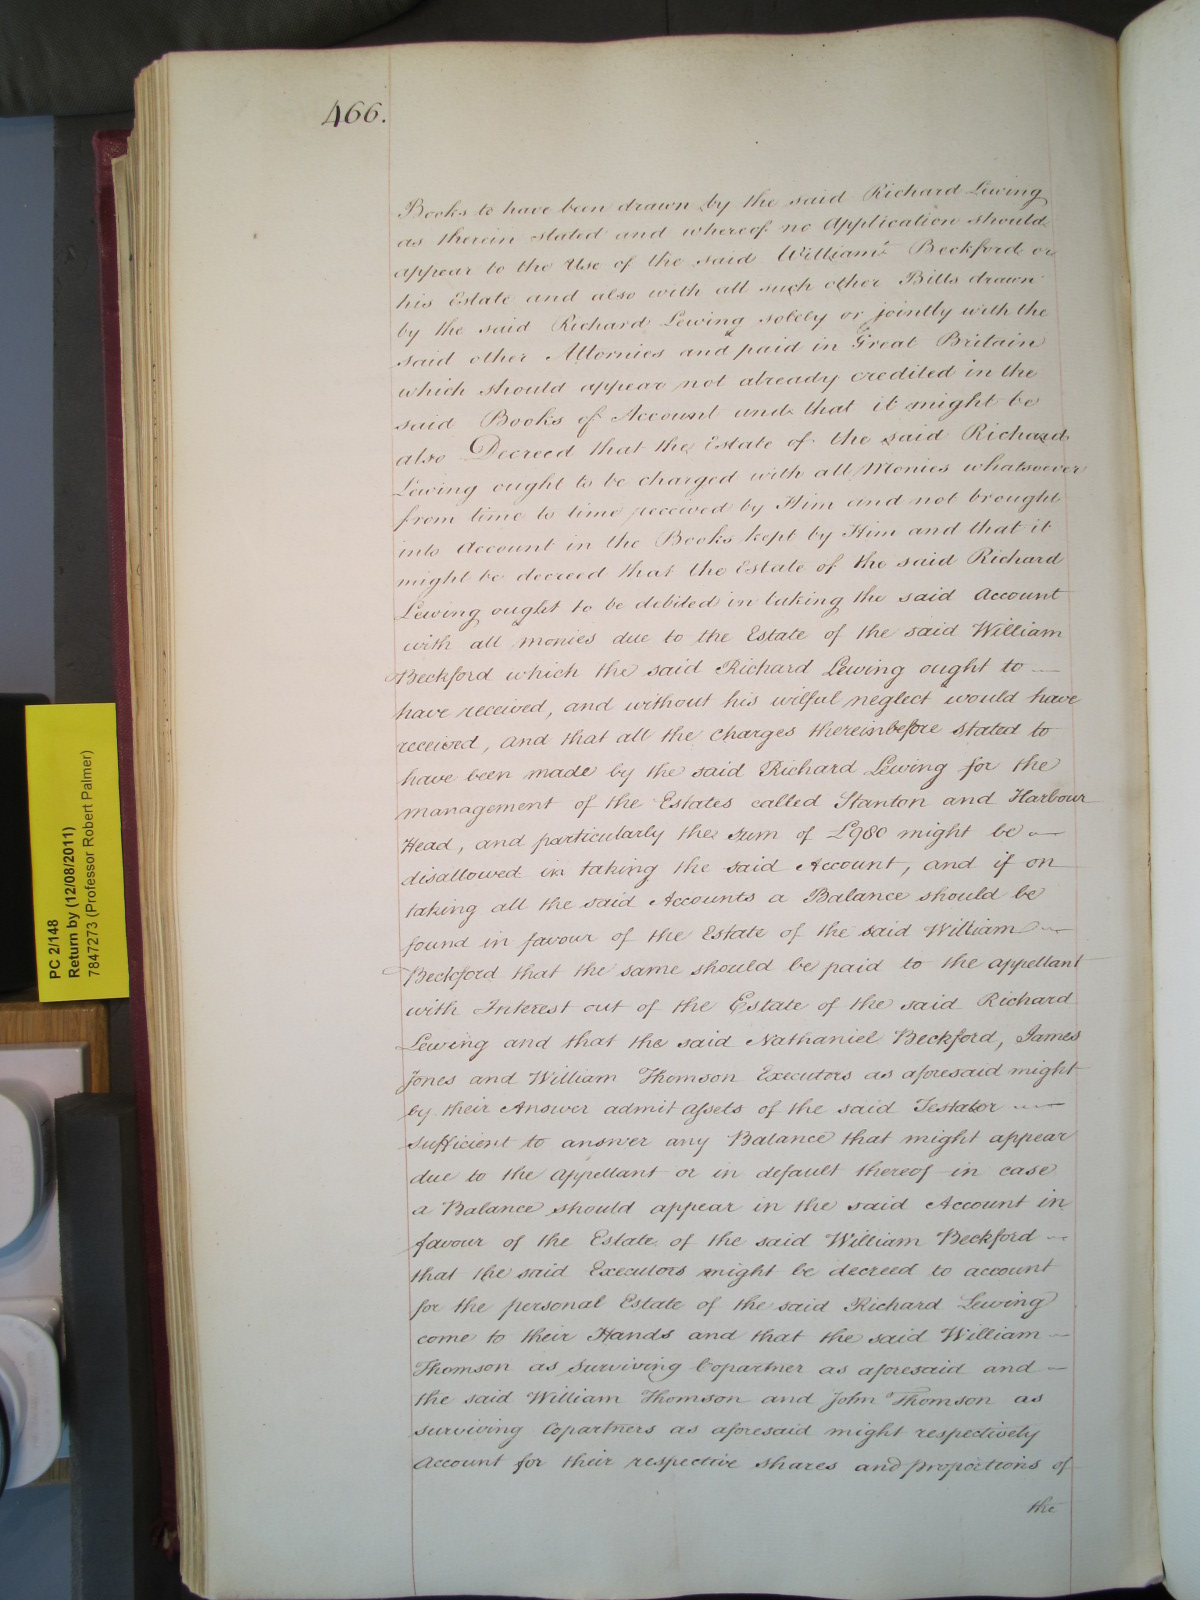 466.
Books to have been drawn by the said Richard Lewing
as therein stated and whereof no Application should
appear to the Use of the said William Beckford or
his Estate and also with all such other Bills drawn
by the said Richard Lewing solely or jointly with the
said other Attornies and paid in Great Britain
which should appear not already credited in the
said Books of Account and that it might be
also Decreed that the Estate of the said Richard
Lewing ought to be charged with all Monies whatsoever
from time to time received by Him and not brought
into Account in the Books kept by Him and that it
might be decreed that the Estate of the said Richard
Lewing ought to be debited in taking the said Account
with all monies due to the Estate of the said William
Beckford which the said Richard Lewing ought to —
have received, and without his wilful neglect would have
received, and that all the Charges thereinbefore stated to
have been made by the said Richard Lewing for the
management of the Estates called Stanton and Harbour
Head, and particularly the sum of £980 might be —
disallowed in taking the said Account, and if on
taking all the said Accounts a Balance should be
found in favour of the Estate of the said William —
Beckford that the same should be paid to the appellant
with Interest out of the Estate of the said Richard
Lewing and that the said Nathaniel Beckford, James
Jones and William Thomson Executors as aforesaid might
by their Answer admit assets of the said Testator —
sufficient to answer any Balance that might appear
due to the appellant or in default thereof in case
a Balance should appear in the said Account in
favour of the Estate of the said William Beckford —
that the said Executors might be decreed to account
for the personal Estate of the said Richard Lewing
come to their Hands and that the said William —
Thomson as surviving Copartner as aforesaid and —
the said William Thomson and John Thomson as
surviving Copartners as aforesaid might respectively
Account for their respective shares and proportions of
the
PC 2/148
Return by (12/08/2011)
7847273 (Professor Robert Palmer)